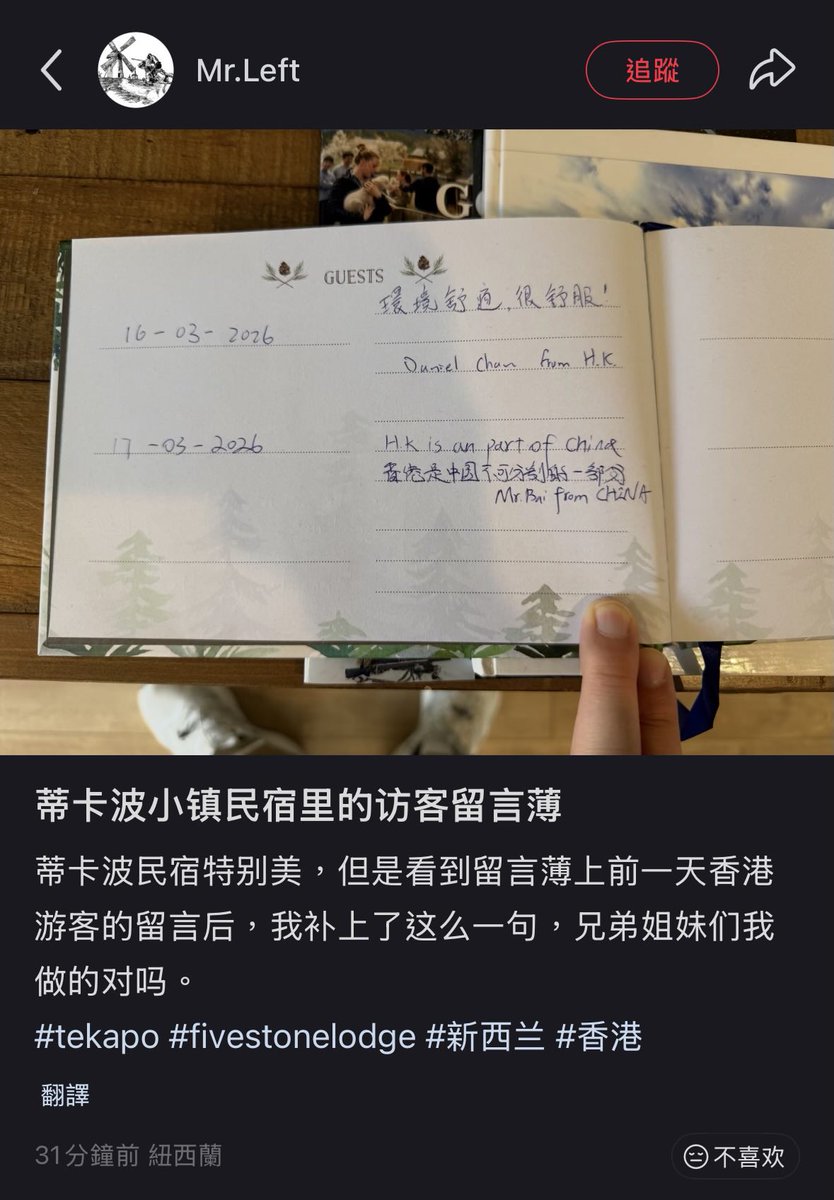 Mr.Left
追蹤
G
GUESTS
環境舒適，很舒服！
16-03-2026
Daniel Chan from H.K.
17-03-2026
H.K is an part of China
香港是中国不可分割的一部分
Mr.Bai from CHINA
蒂卡波小镇民宿里的访客留言薄
蒂卡波民宿特别美，但是看到留言薄上前一天香港
游客的留言后，我补上了这么一句，兄弟姐妹们我
做的对吗。
#tekapo #fivestonelodge #新西兰 #香港
翻譯
31分鐘前 紐西蘭
不喜欢